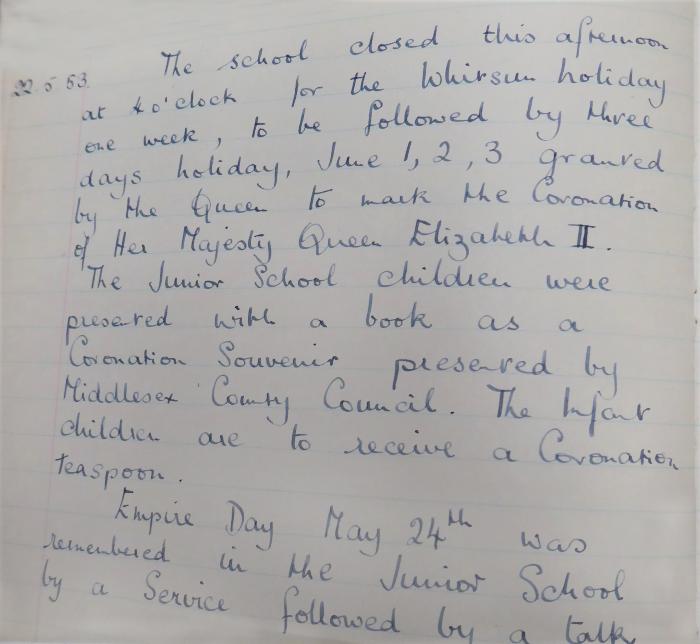 The school closed this afternoon
22.5.53.
at 4 o'clock for the Whitsun holiday
one week, to be followed by three
days holiday, June 1, 2, 3 granted
by the Queen to mark the Coronation
of Her Majesty Queen Elizabeth II.
The Junior School children were
presented with a book as a
Coronation Souvenir presented by
Middlesex County Council. The Infant
children are to receive a Coronation
teaspoon.
Empire Day May 24th was
remembered in the Junior School
by a Service followed by a talk